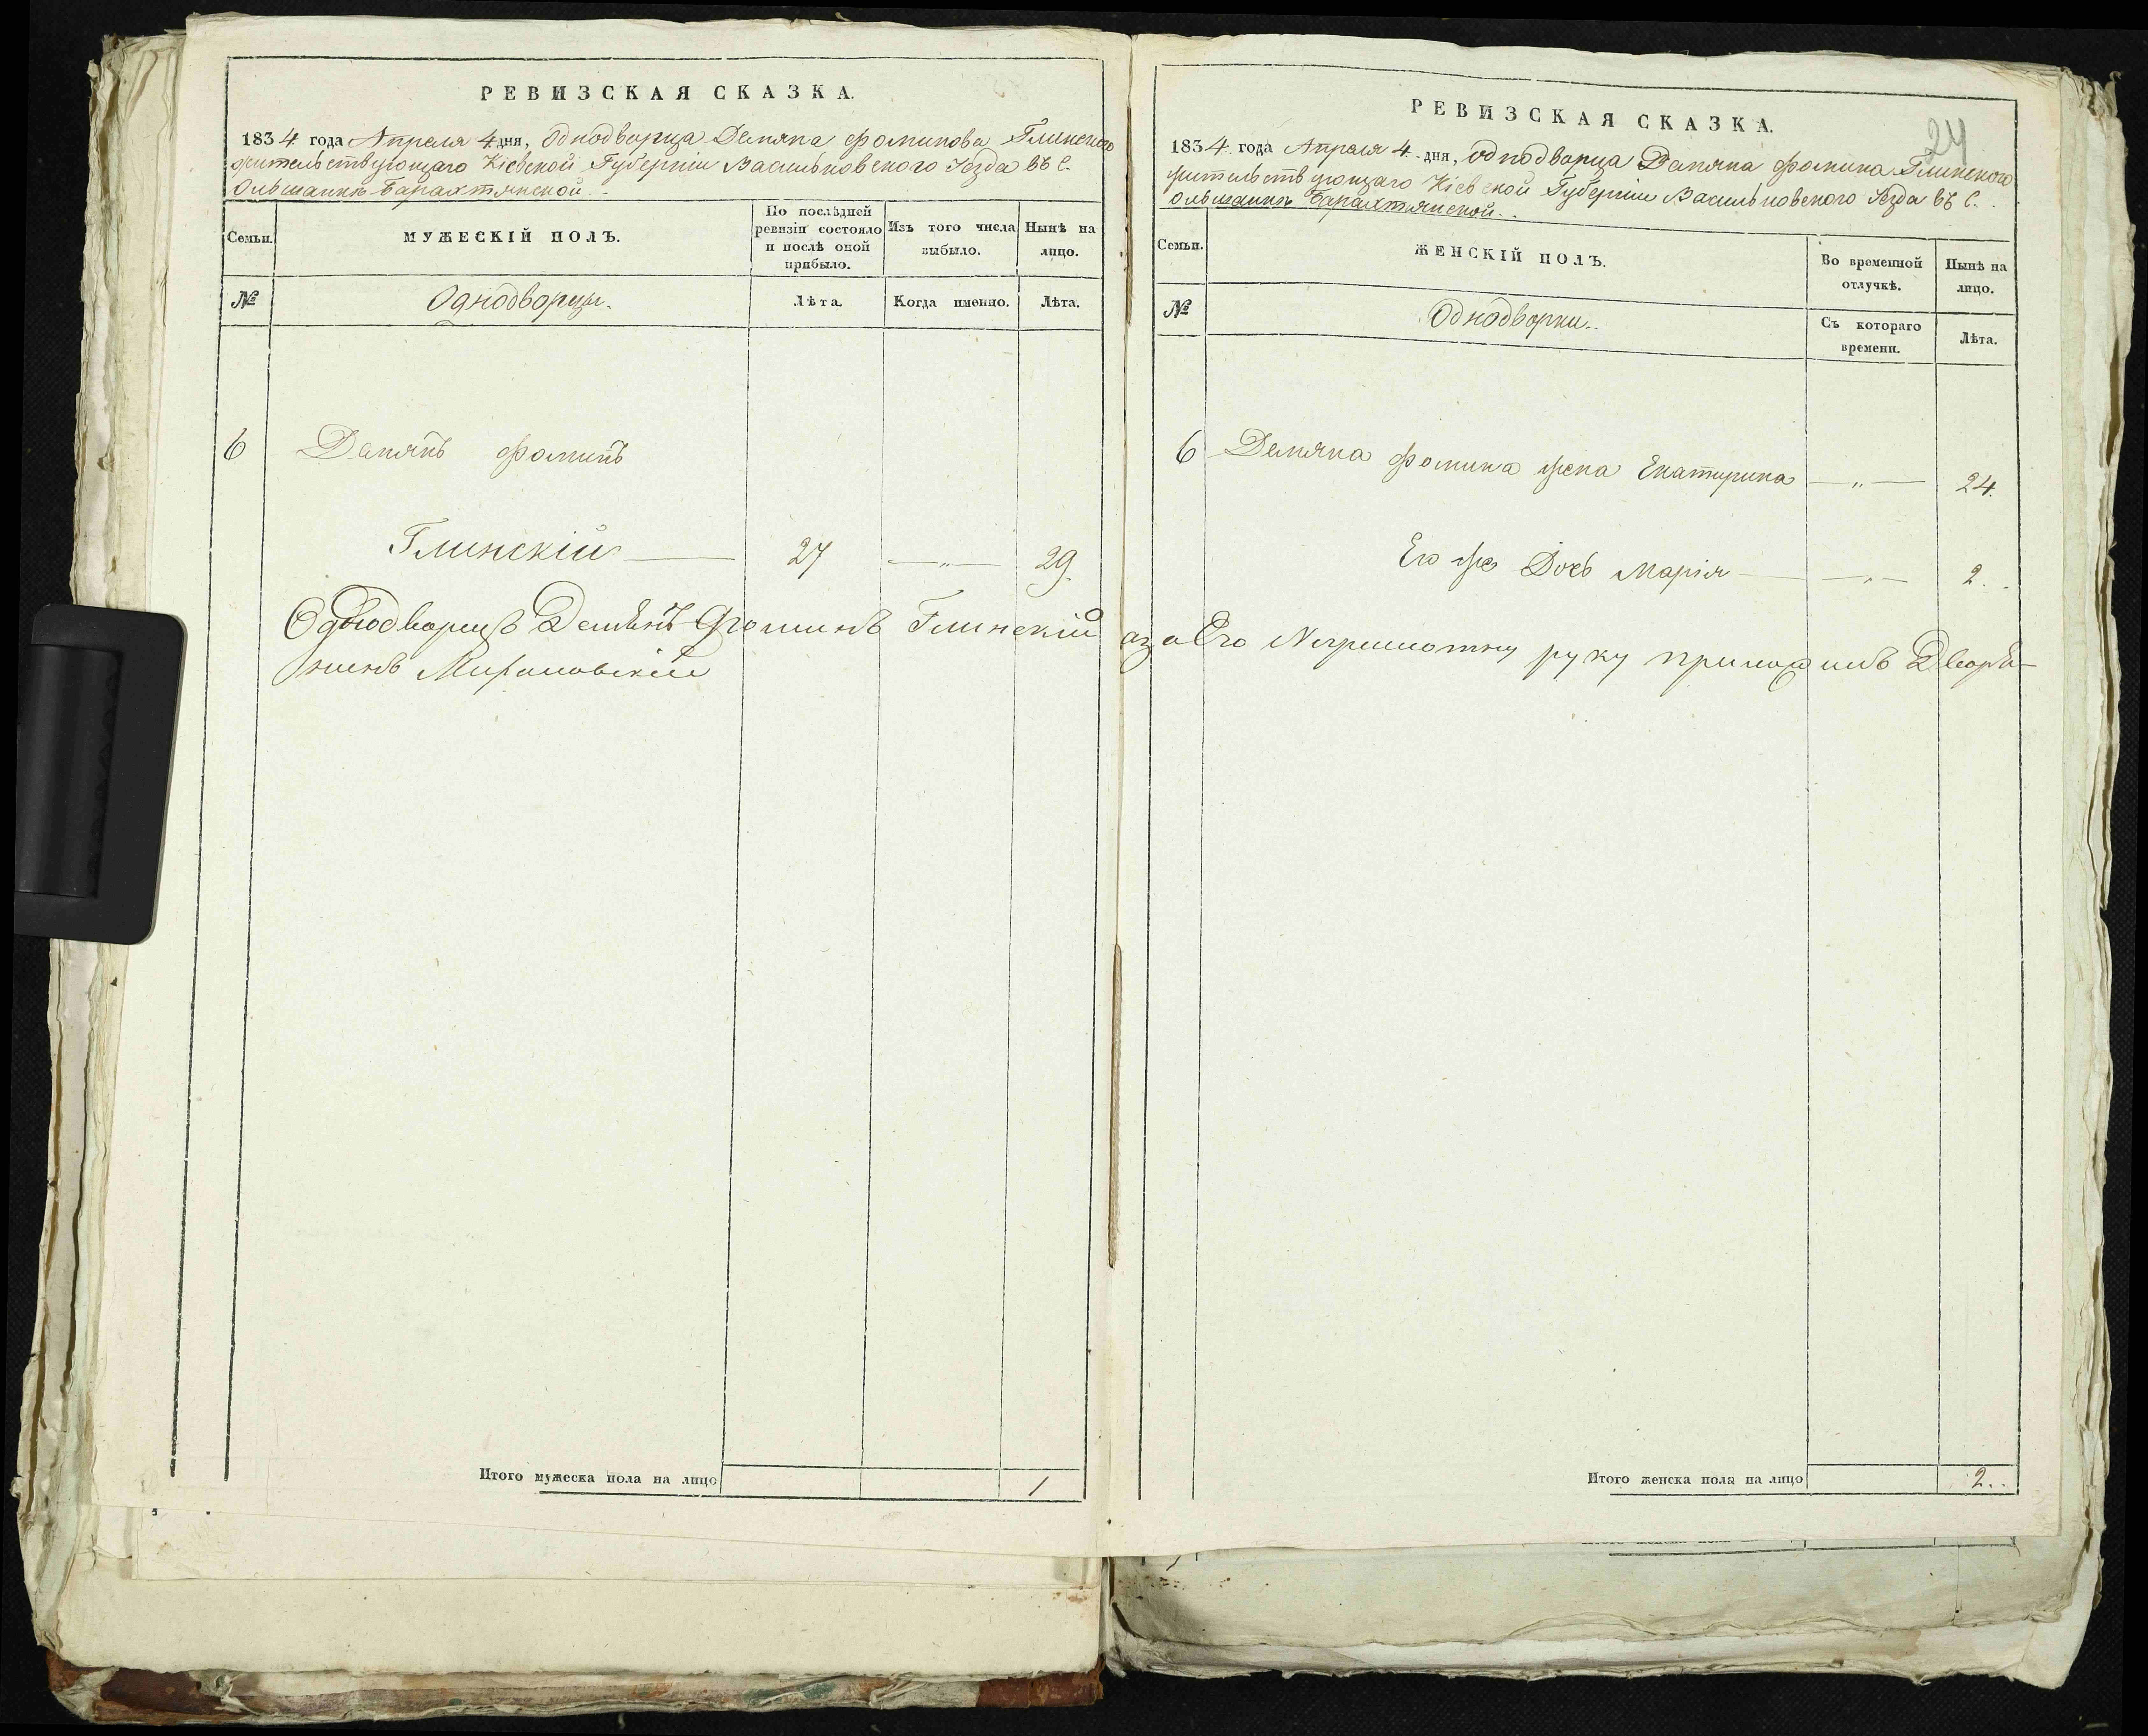 РЕВИЗСКАЯ СКАЗКА.
1834 года Апреля 4 дня, Однодворца Демяна Фоминова Глинского
жительствующаго Кіевской Губерніи Васильковского Уезда въ С.
Ольшанкѣ Барахтянской
Семьи.
МУЖЕСКІЙ ПОЛЪ.
По послѣдней ревизіи состояло и послѣ оной прибыло.
Изъ того числа выбыло.
Нынѣ на лицо.
№
Однодворцы.
Лѣта.
Когда именно.
Лѣта.
6 Демянъ Фоминъ
Глинскій 27 — „ — 29.
Однодворецъ Демянъ Фоминъ Глинский
нинъ
Итого мужеска пола на лицо 1
24
РЕВИЗСКАЯ СКАЗКА.
1834 года Апреля 4 дня, Однодворца Демяна Фомина Глинского
жительствующаго Кіевской Губерніи Васильковского Уезда въ С.
Ольшанкѣ Барахтянской.
Семьи.
ЖЕНСКІЙ ПОЛЪ.
Во временной отлучкѣ.
Нынѣ на лицо.
№
Однодворки.
Съ котораго времени.
Лѣта.
6 Демяна Фомина жена Екатирина — „ — 24.
Его же Дочь Марія — „ — 2.
а за Его Неграмотну руку приложилъ Дворя-
Итого женска пола на лицо 2.